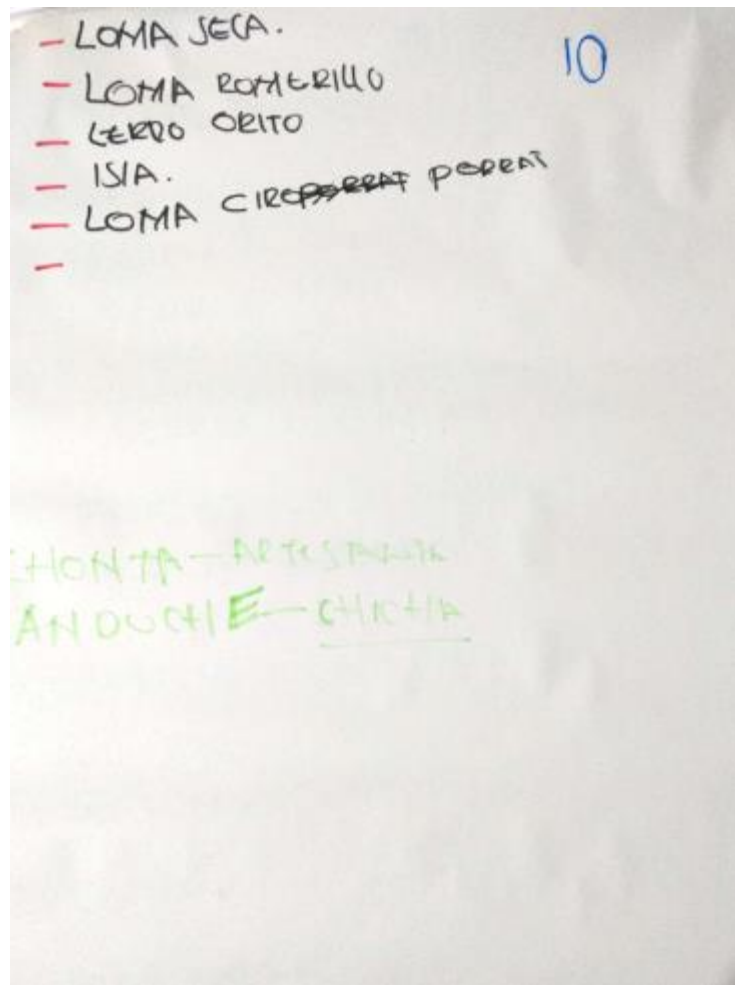 - LOMA SECA.
10
- LOMA ROMERILLO
- CERRO ORITO
- ISLA.
- LOMA CIRO PORRAT
-
HONTA - ARTESANIA
ANDUCHE - CHICHA